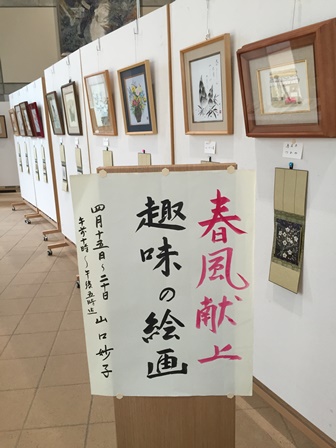 春風献上
趣味の絵画
四月十五日〜二十日 山口妙子
午前十時〜午後五時迄